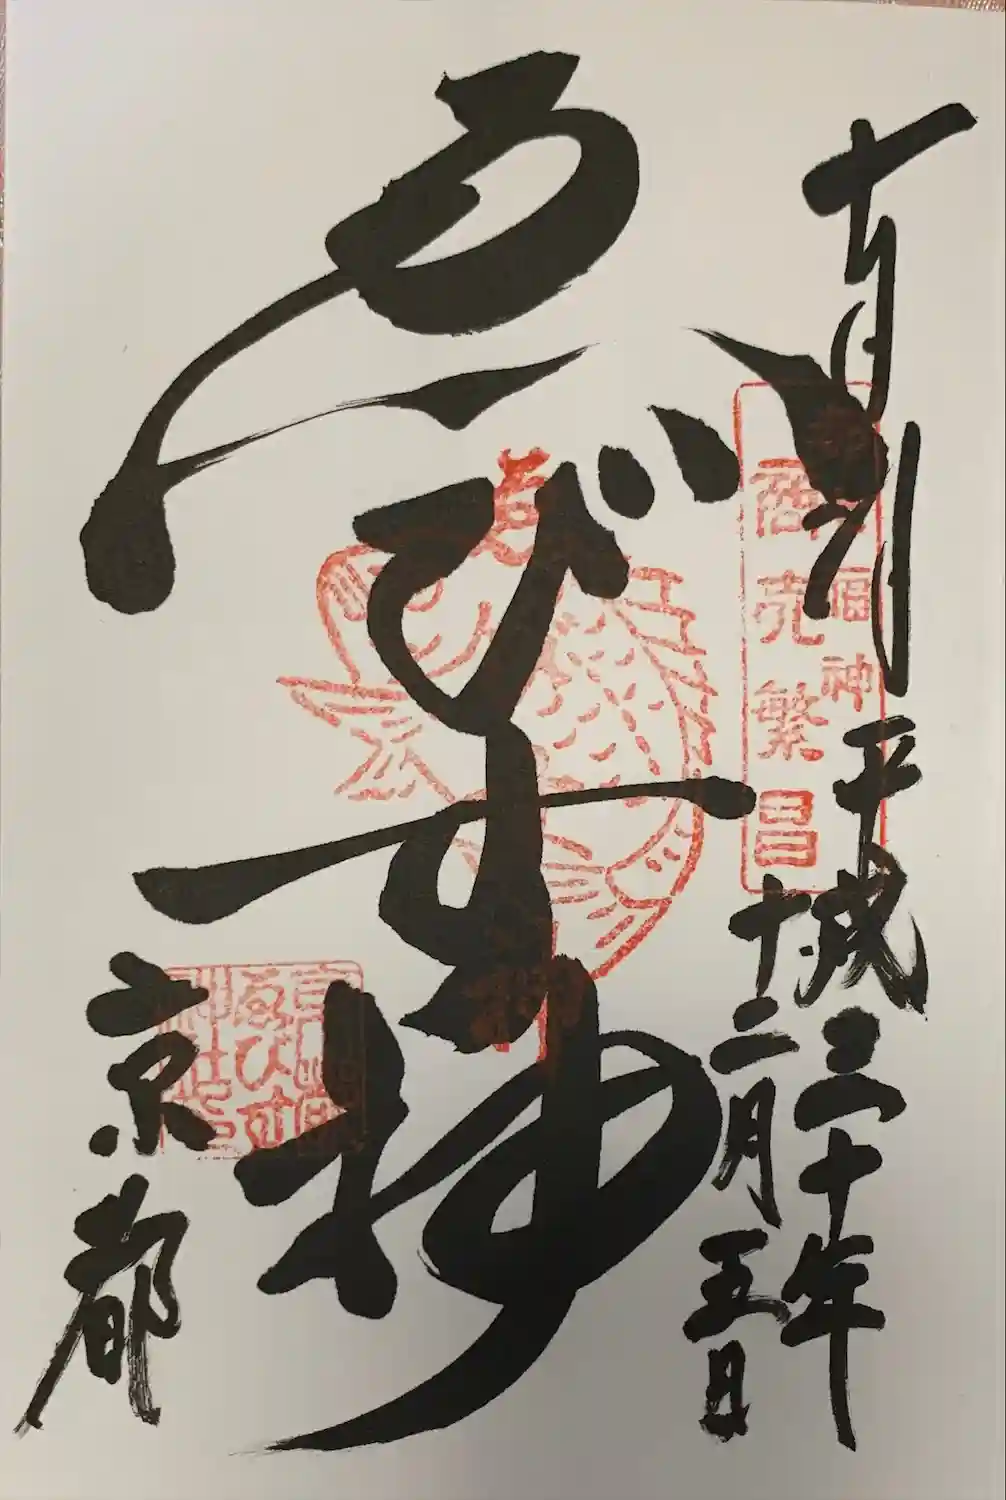 平成三十年
十二月五日
福神
商売繁昌
ゑびす神
ゑびす
京都